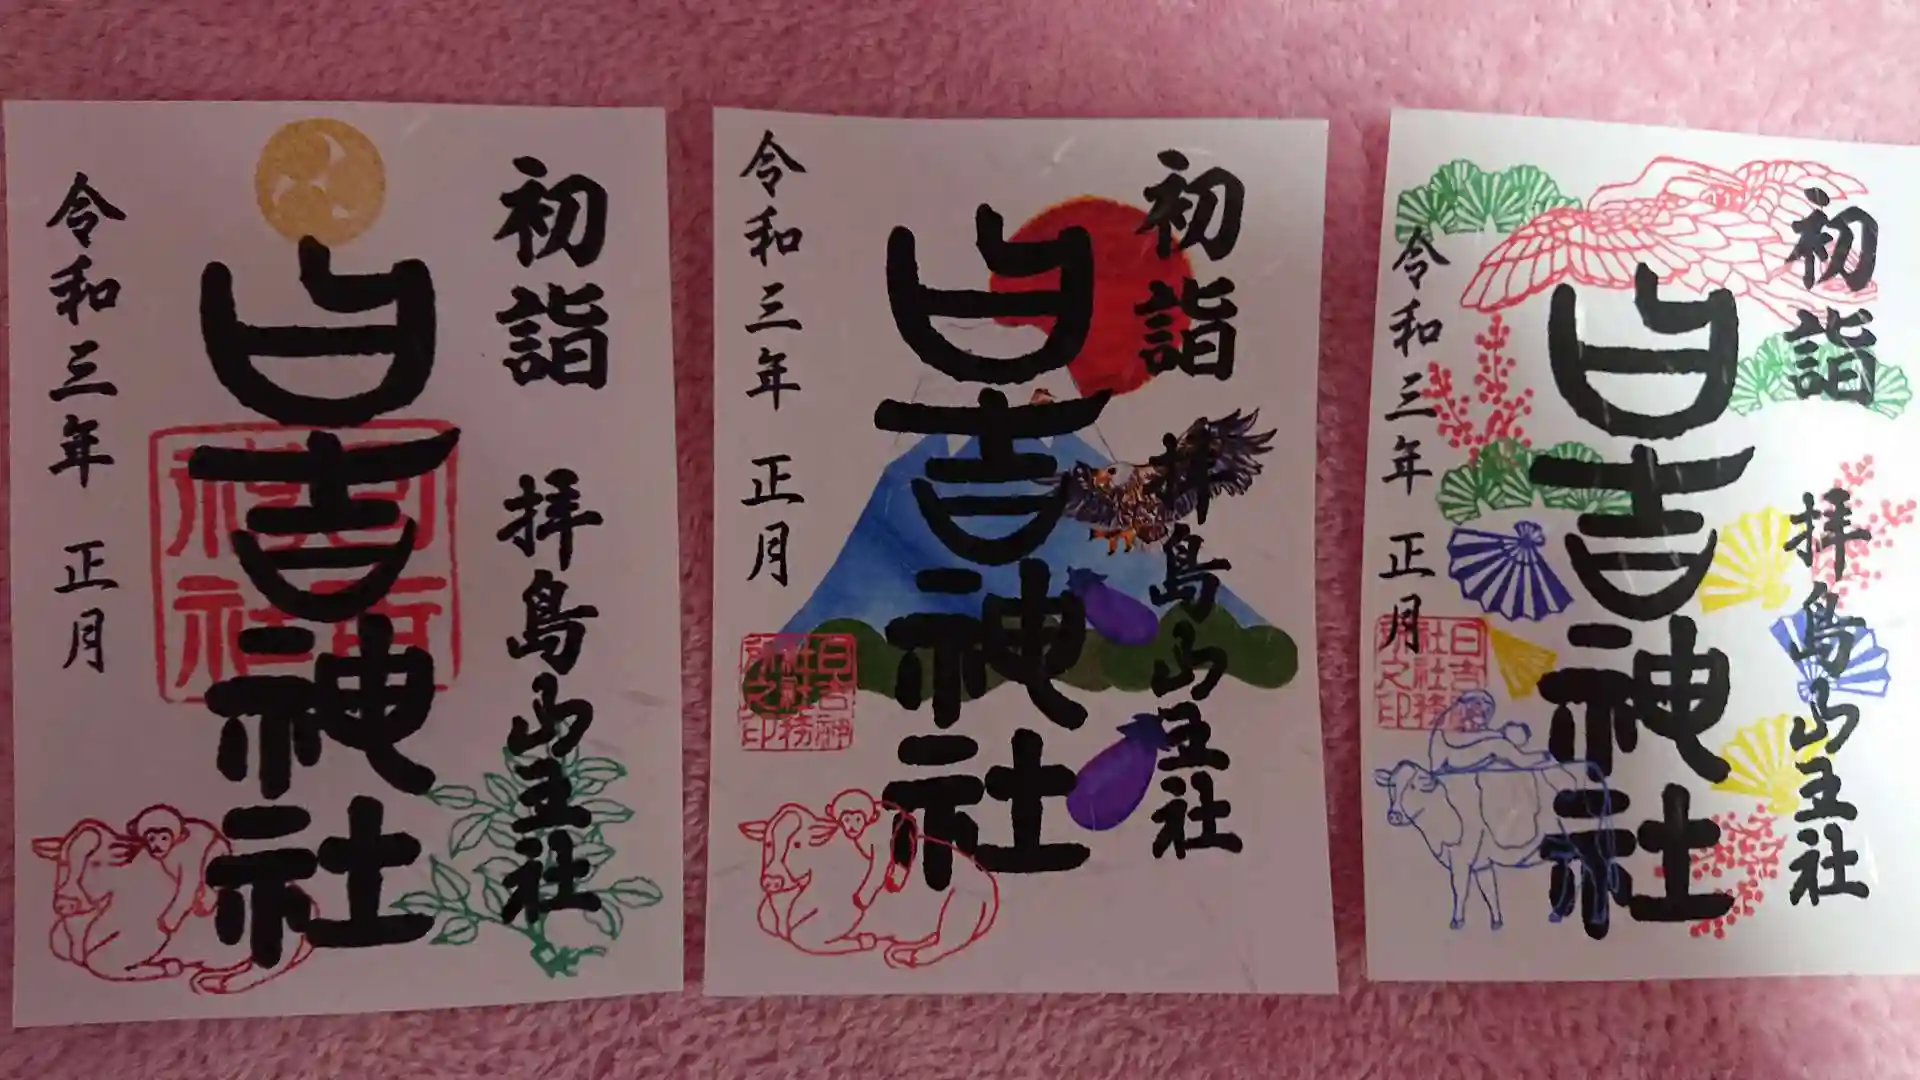 初詣 拝島山王社
日吉神社
令和三年 正月
初詣 拝島山王社
日吉神社
令和三年 正月
日吉神
社社務
所之印
初詣 拝島山王社
日吉神社
令和三年 正月
日吉神
社社務
所之印